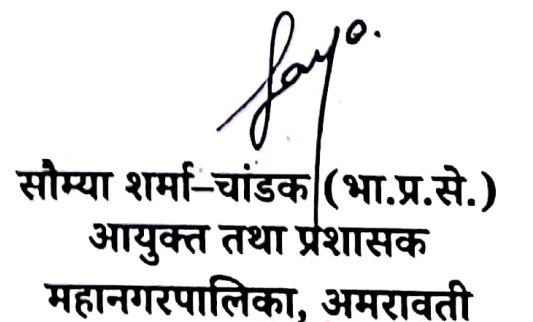 सौम्या शर्मा–चांडक (भा.प्र.से.)
आयुक्त तथा प्रशासक
महानगरपालिका, अमरावती